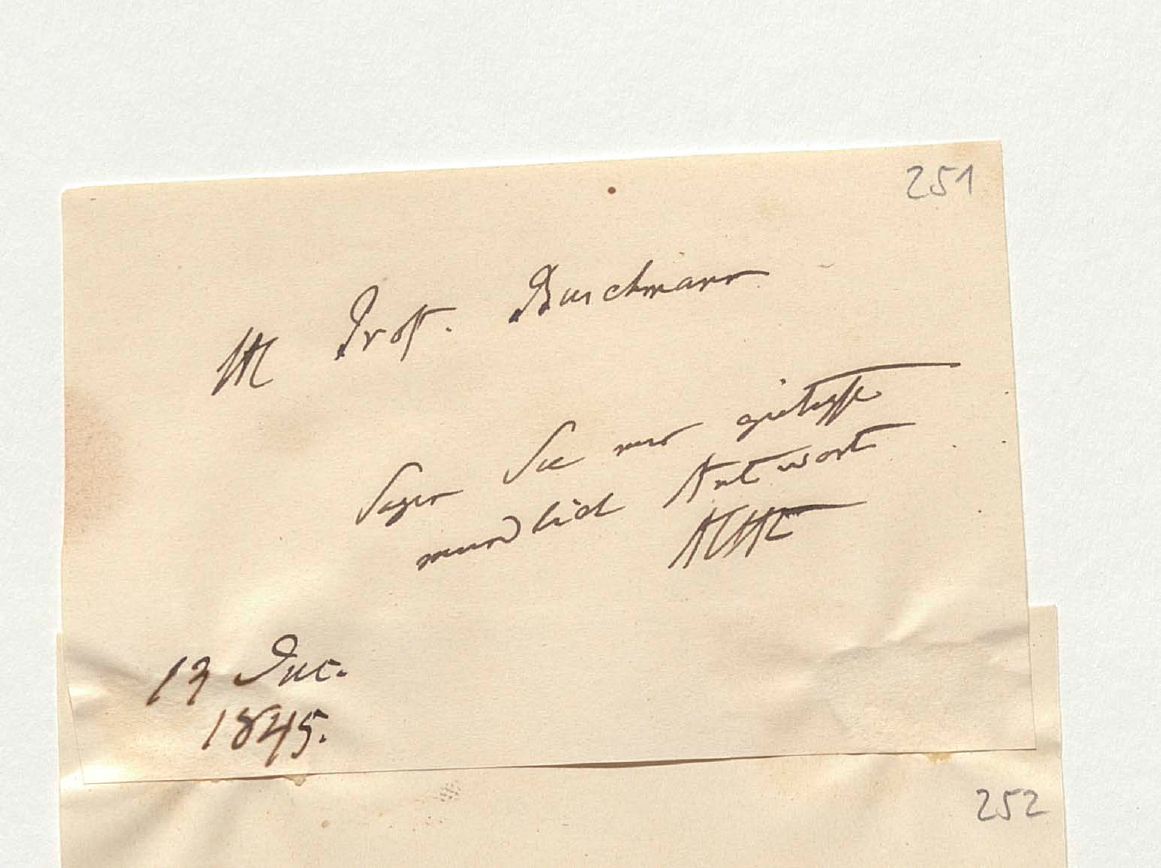 251
H Prof. Buschmann
Sagen Sie nur gütigst
mündlich Antwort
AHt
13 Dec.
1845.
252